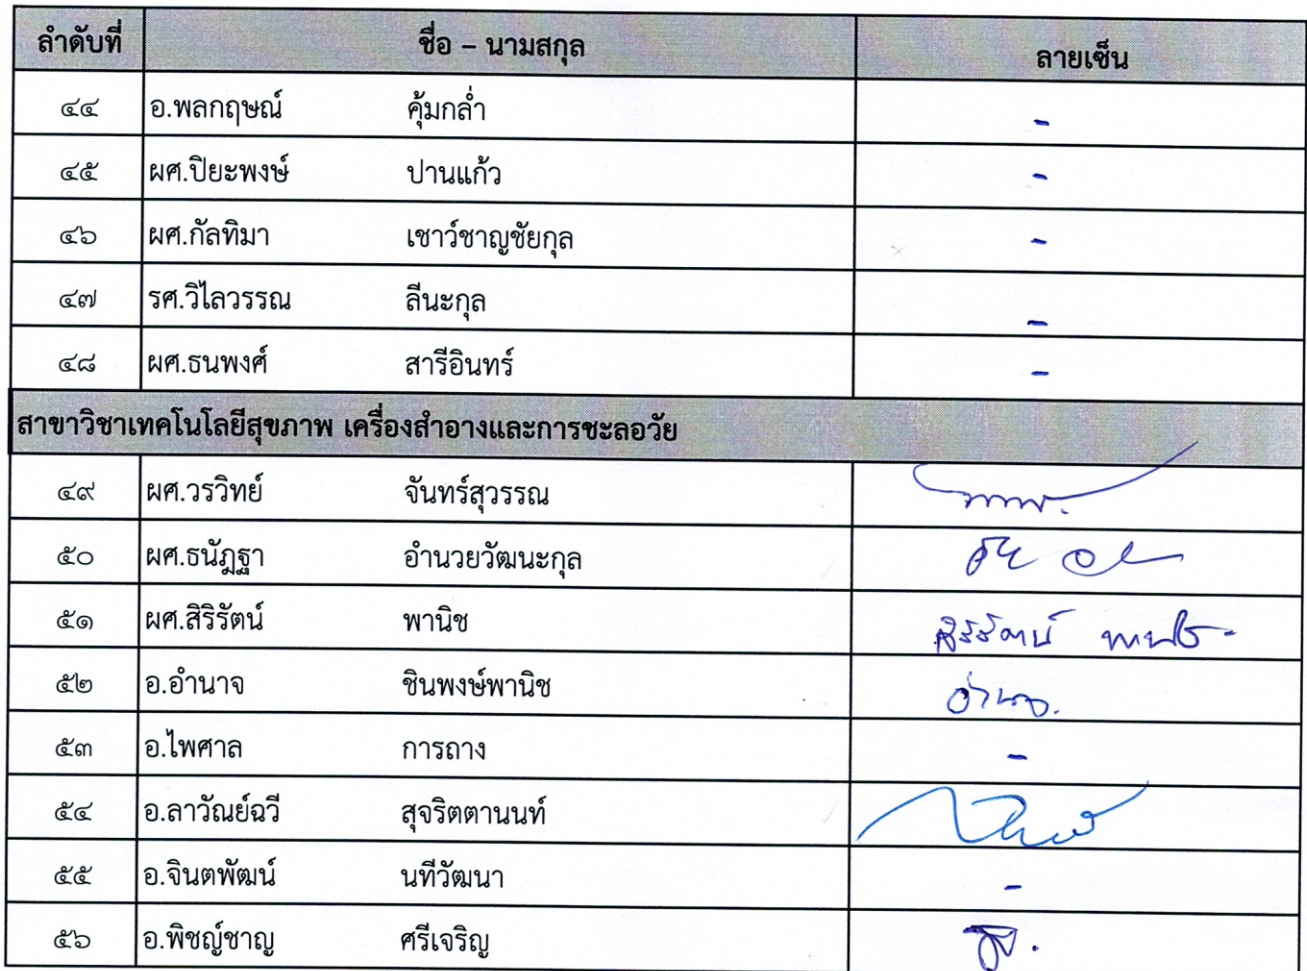 ลำดับที่ ชื่อ – นามสกุล ลายเซ็น
๔๔ อ.พลกฤษณ์ คุ้มกล่ำ -
๔๕ ผศ.ปิยะพงษ์ ปานแก้ว -
๔๖ ผศ.กัลทิมา เชาว์ชาญชัยกุล -
๔๗ รศ.วิไลวรรณ ลีนะกุล -
๔๘ ผศ.ธนพงศ์ สารีอินทร์ -
สาขาวิชาเทคโนโลยีสุขภาพ เครื่องสำอางและการชะลอวัย
๔๙ ผศ.วรวิทย์ จันทร์สุวรรณ
๕๐ ผศ.ธนัฎฐา อำนวยวัฒนะกุล
๕๑ ผศ.สิริรัตน์ พานิช สิริรัตน์ พานิช
๕๒ อ.อำนาจ ชินพงษ์พานิช อำนาจ.
๕๓ อ.ไพศาล การถาง -
๕๔ อ.ลาวัณย์ฉวี สุจริตตานนท์
๕๕ อ.จินตพัฒน์ นทีวัฒนา -
๕๖ อ.พิชญ์ชาญ ศรีเจริญ